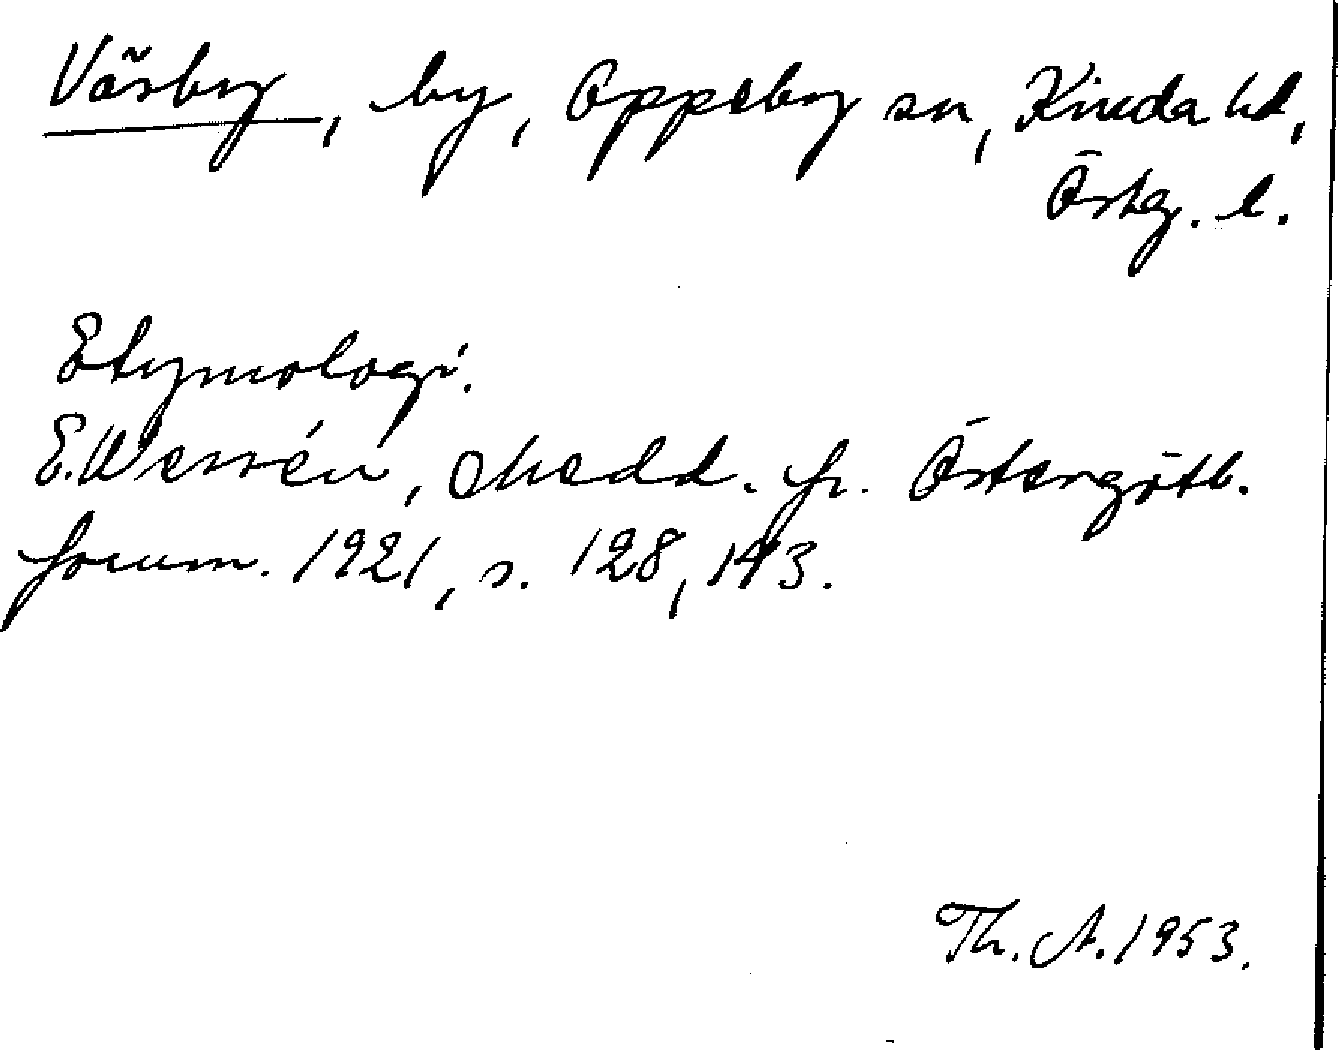 Väsby, by, Oppeby sn, Kinda hd,
Östg. l.
Etymologi.
E. Wessén, Medd. fr. Östergötl.
fornm. 1921, s. 128, 143.
Th. A. 1953.